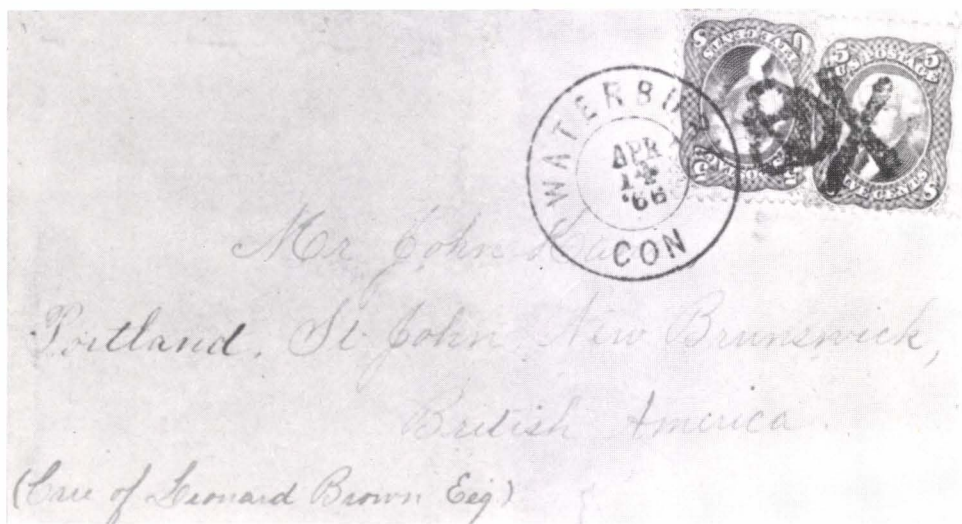 WATERBU
APR
14
'66
CON
5 5
U.S. POSTAGE
FIVE CENTS
Mr John
Portland, St John New Brunswick,
British America.
(Care of Leonard Brown Esq)